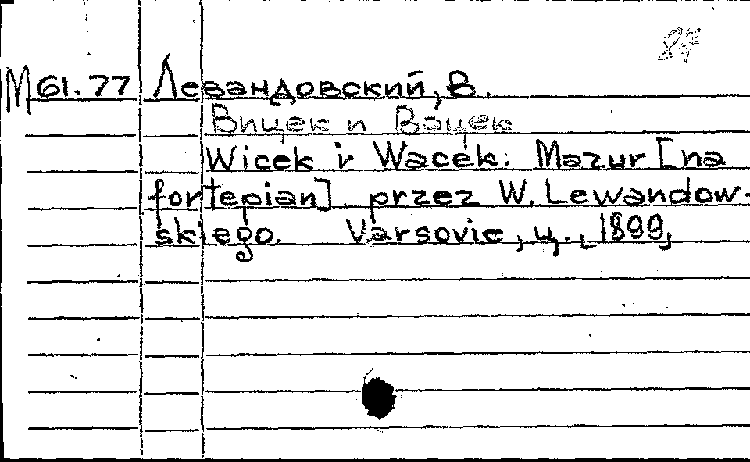 87
М 61.77 Левандовский, В.
Вицек и Вацек
Wicek i Wacek: Mazur [na
fortepian] przez W. Lewandow-
skiego. Varsovie, ц., 1899,